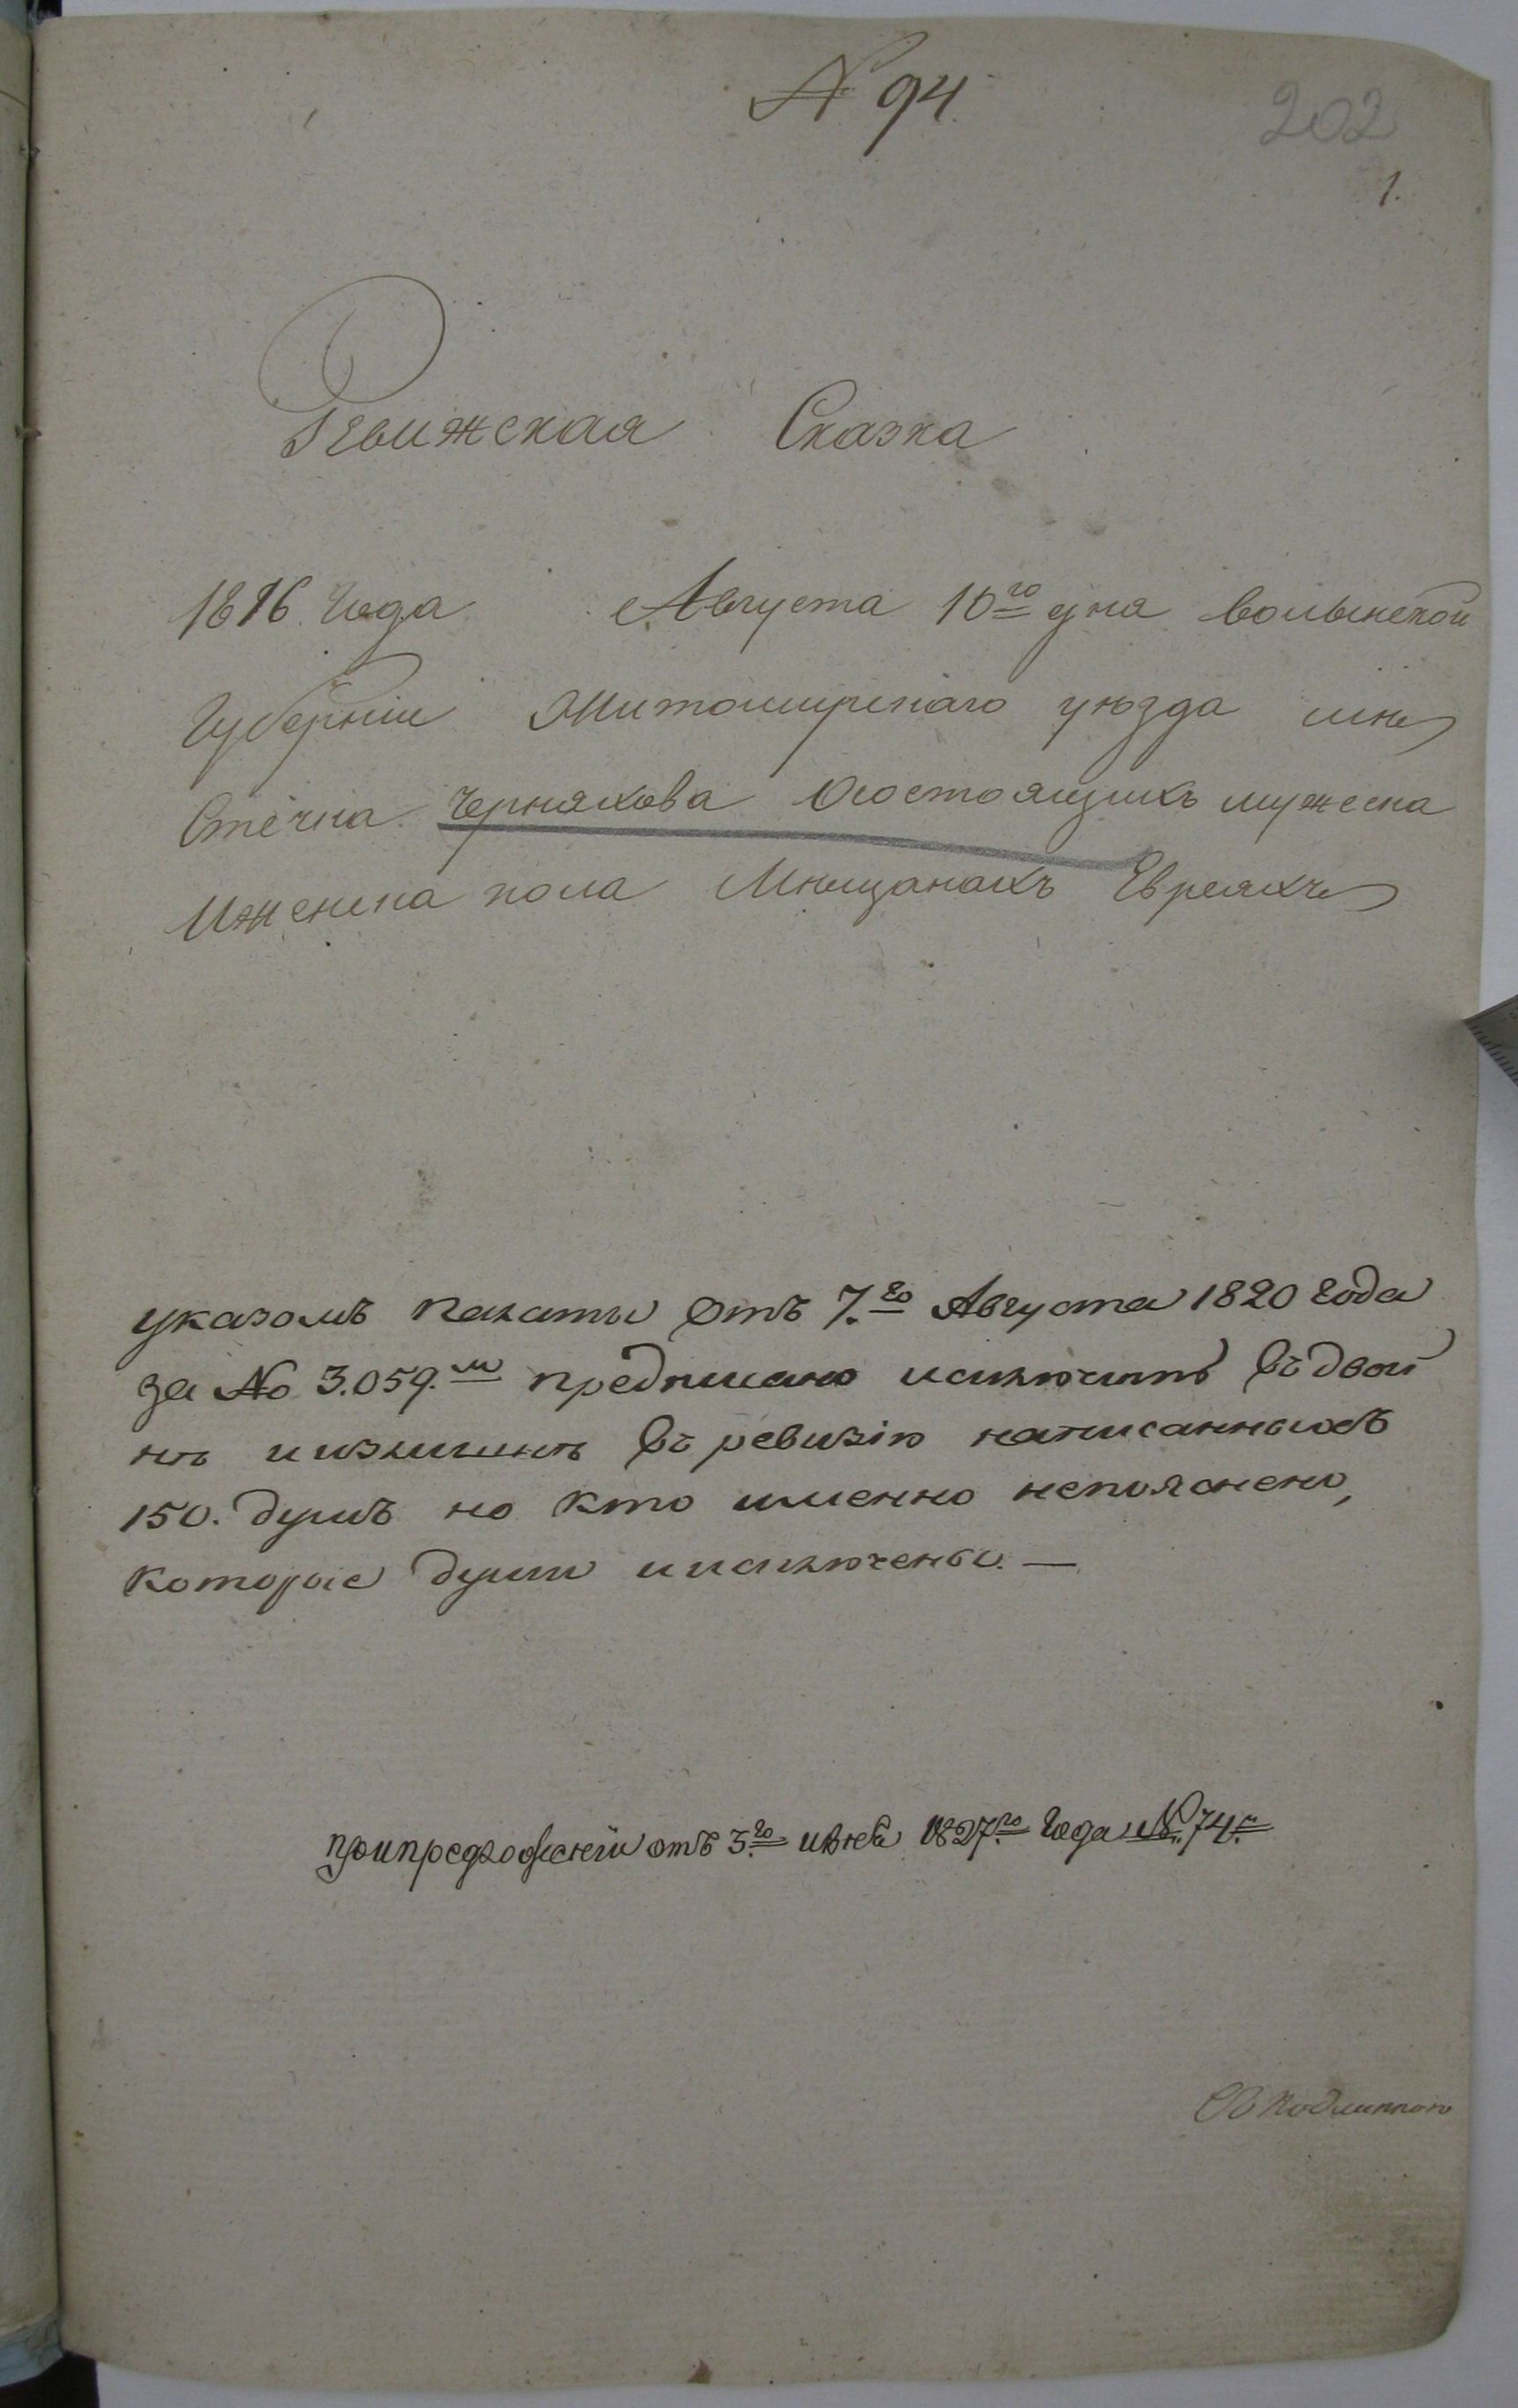 № 94.
202
1.
Ревижская Сказка
1816 Года Августа 10го дня волынской
Губернии Житомирскаго уезда мѣ
Стечка Черняхова Осостоящихъ мужеска
Иженска пола Мѣщанахъ Евреяхъ
указомъ палаты отъ 7.го Августа 1820 года
за № 3.059.м предписано исключить въ двой
нѣ и излишнѣ въ ревизію написанныхъ
150. душъ но кто именно непояснено,
которые души и исключены. —
при предложеніи отъ 3.го 1827.го Года №. 74.м
Съ подлиннаго